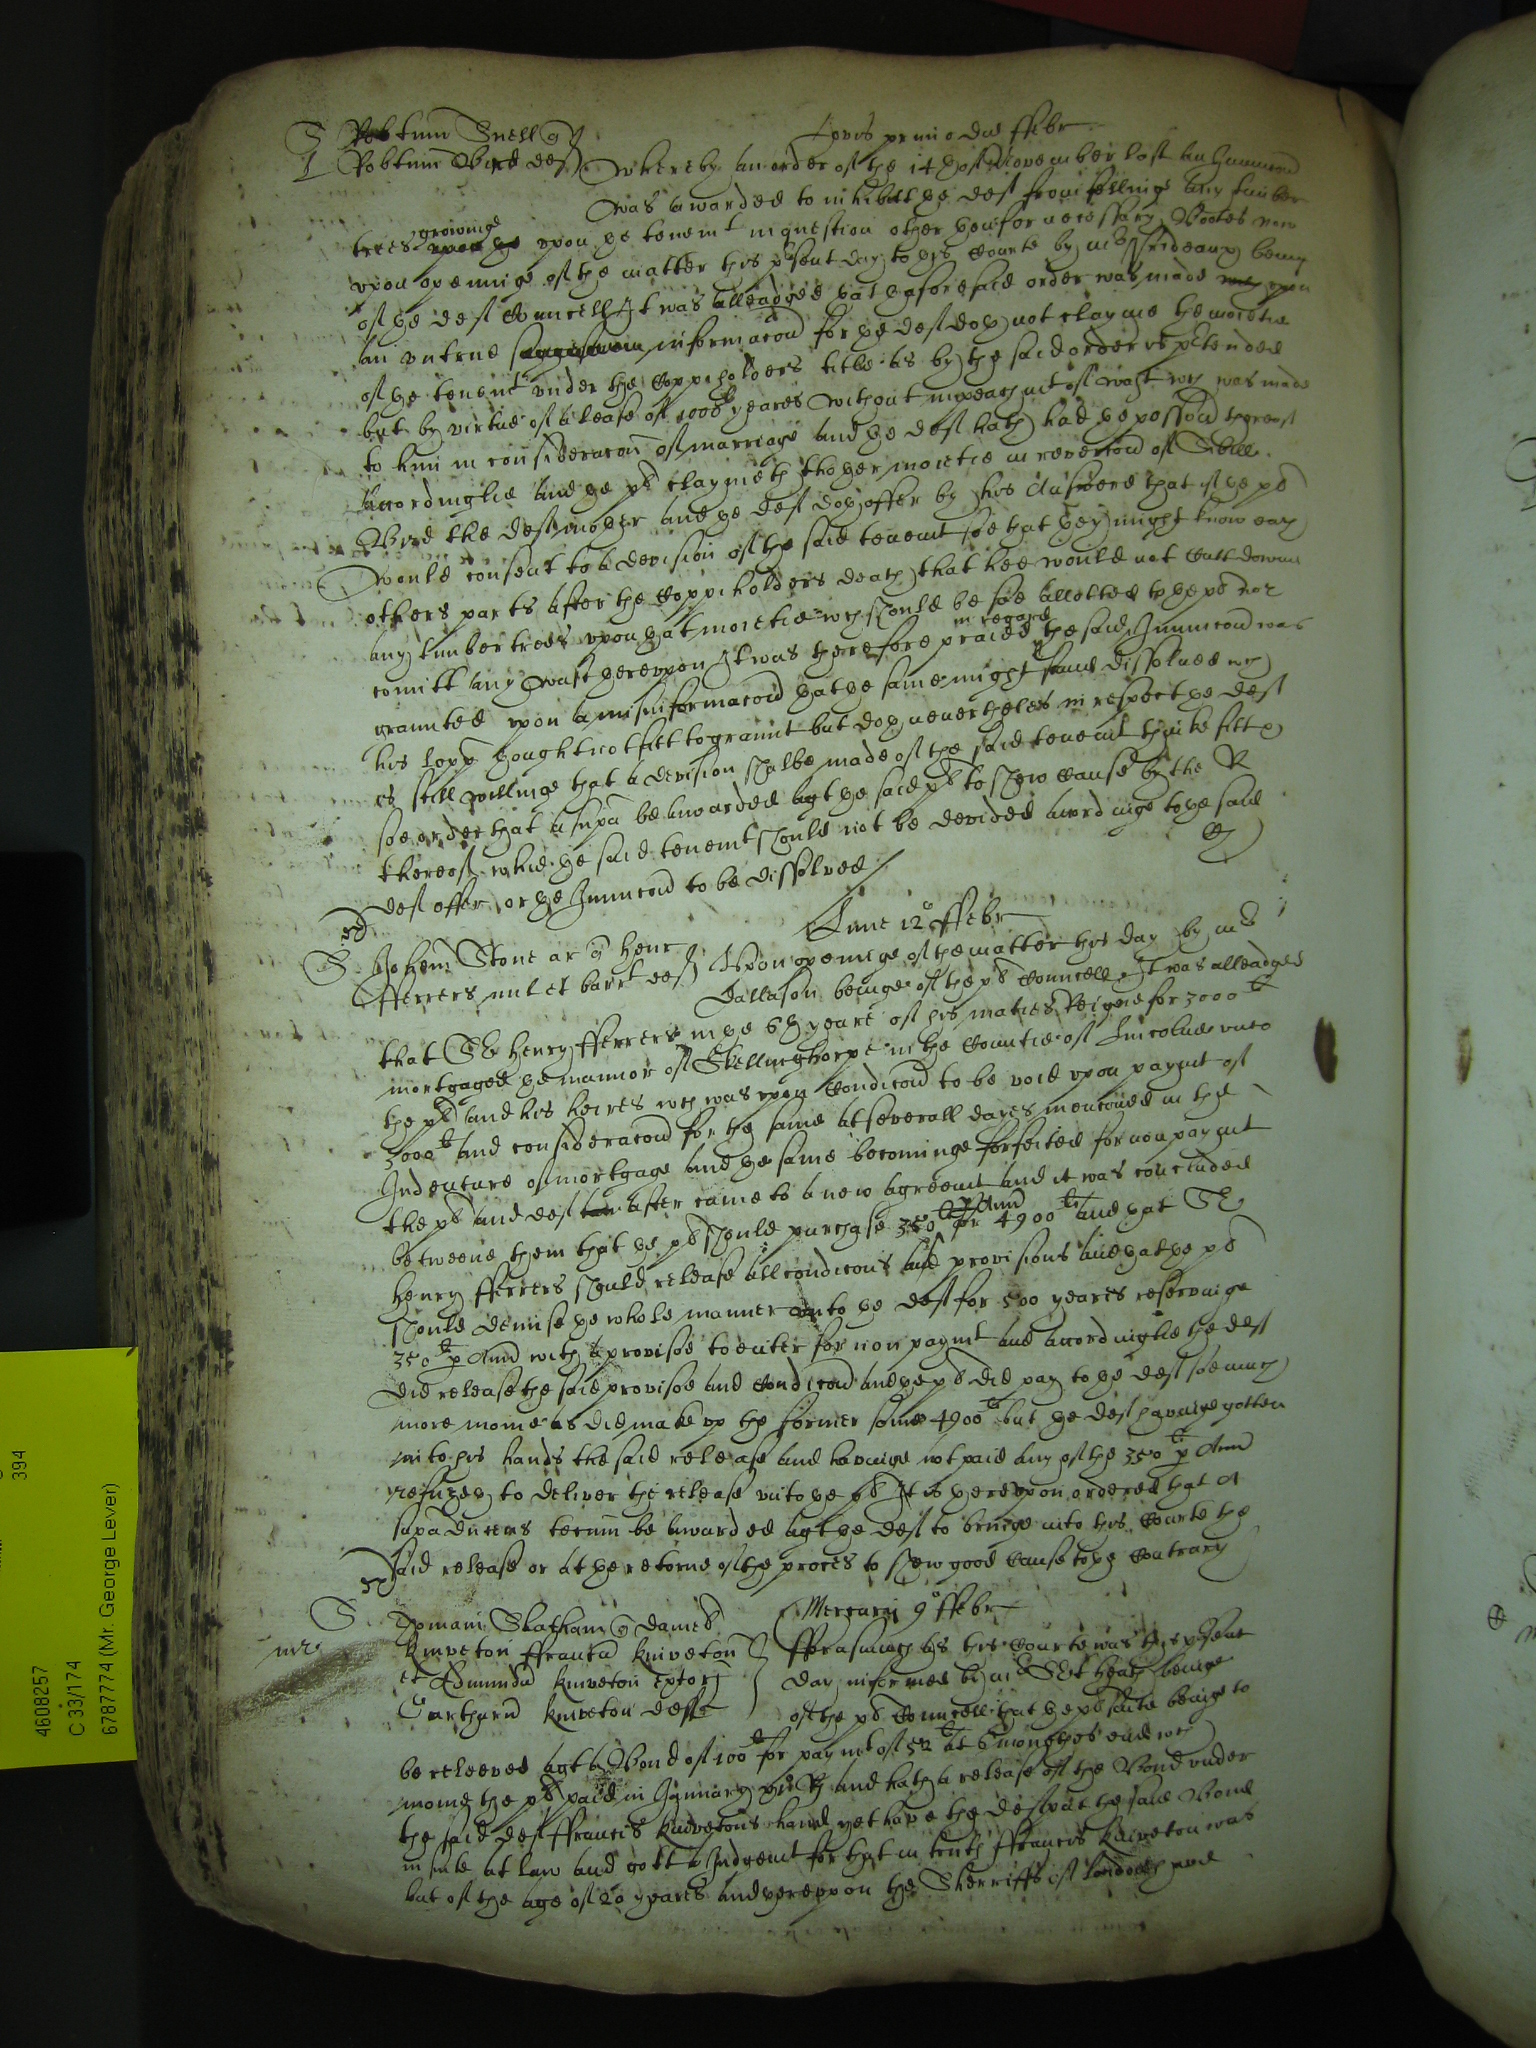 S Robtum Snell q Jovis primo die ffebr
Robtum Bird def Whereby an order of the 14th of November last an Iniunccon
was awarded to inhibitt the def from fellinge any timber
trees growinge upon the tenemt in question other then for necessary Bootes now
upon openinge of the matter this psent day to this Courte by mr Prideaux being
of the def Councell It was alleadged that thaforesaid order was made upon
an untrue informacon for the def doth not clayme the moietie
of the tenemt under the Coppiholders title as by the said order is ptended
but by virtue of a lease of 1000 yeares without impeachmt of wast wch was made
to him in consideracon of marriage and the def hath had the possion thereof
accordinglie and the pl claymeth thother moietie in revercon of Sibill
Bird the def mother and the def doth offer by his Answere that if the pl
would consent to a devision of the said tenemt soe that they might know each
others parts after the Coppiholders death that hee would not Cutt downe
any timber trees upon that moietie wch should be soe allotted to the pl nor
comitt any wast thereupon It was therefore praied in regard the said Iniunccon was
graunted upon a misinformacon that the same might stand dissolved wch
his lopp thought not fitt to graunt but doth nevertheles in respect the def
is still willinge that a devision shalbe made of the said tenemt thinke fitt &
soe order that a supa be awarded agt the said pl to shew Cause by the R
thereof while the said tenemt should not be devided accordinge to the said
def offer or the Iniunccon to be dissolved
S Iohem Stone ar q Henr Lune 12o ffebr
fferrers milet barrt def Upon openinge of the matter this day by mr
Dallason beinge of the pl Councell It was alleadged
that Sr Henry fferrers in the 6th yeare of his maties Reigne for 3000 li
mortgaged the mannor of Skellingthorpe in the Countie of Lincolne unto
the pl and his heires wch was upon Condicon to be void upon paymt of
3000 li and consideracon for the same at severall dayes menconed in the
Indenture of mortgage and the same becominge forfeited for non paymt
the pl and def after came to a new agreemt and it was concluded
betweene them that the pl should purchase 350 li p Ann for 4900 li and that Sr
Henry fferrers should release all condicons and provisions and that the pl
should demise the whole manner unto the def for 500 yeares reservinge
350 li p Ann with a provisoe to enter for non paymt and accordinglie the def
did release the said provisoe and Condicon and the pl did pay to the def soe much
more monie as did make up the former some 4900 li but the def havinge gotten
into his hands the said release and havinge not paid any of the 350 li p Ann
refuzeth to deliver the release unto the pl It is thereupon ordered that A
supa ducens tecum be awarded agt the def to bringe into this Courte the
said release or at the retorne of the proces to shew good Cause to the Contrary
S Mercurij 9o ffebr
Statham q
Kniveton ffrancu Kniveton fforasmuch as this Courte was this psent
et Edmundu Kniveton day informed by mr heath beinge
Kniveton deff of the pl Councell that the pl suite beinge to
be releeved agt a Bond of 100 li for paymt of 52 li at 6 monthes end wch
money the pl paid in January and hath a release of the Bond under
the said def ffrancis Knivetons hand yet have the def put the said Bond
in suite at law and gott a Judgemt for that in truth ffrancis Kniveton was
but of the age of 20 yeares and thereupon the Sherriffs of London have
4608257
C 33/174
6787774 (Mr. George Lever)
394